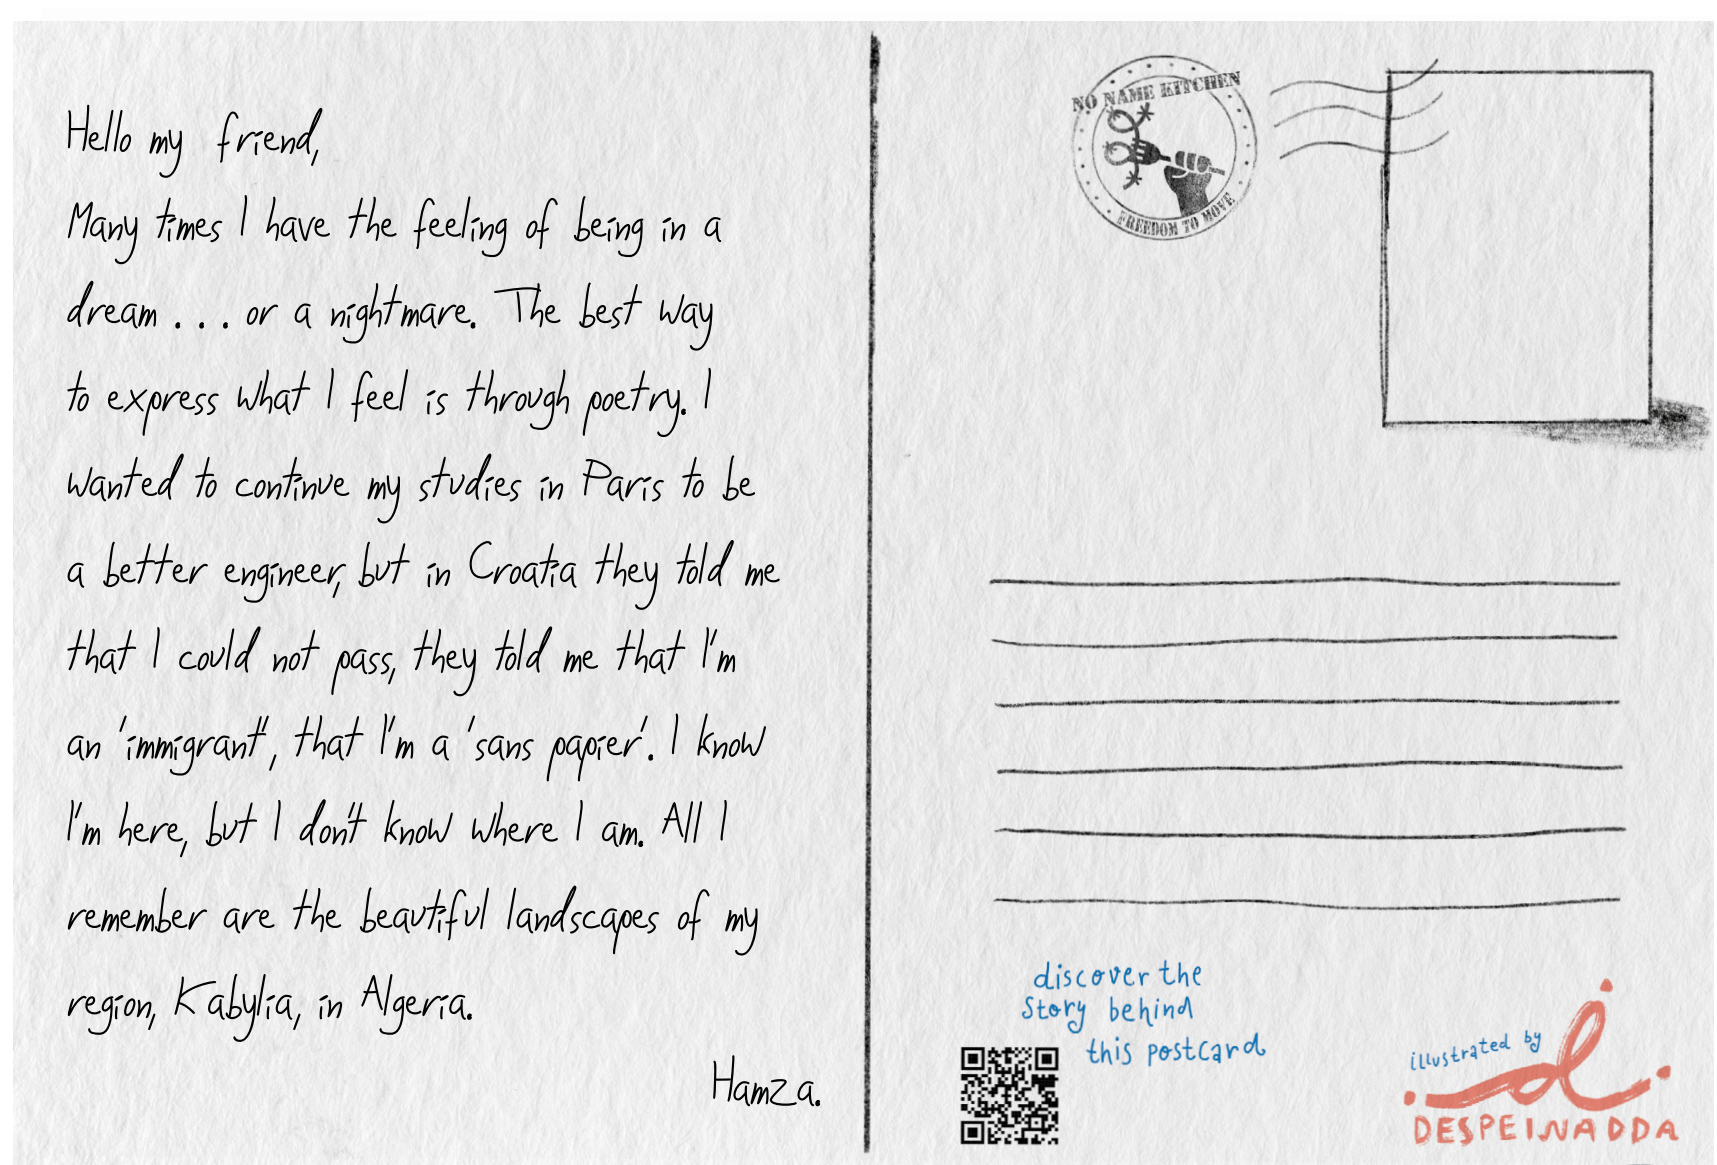 Hello my friend,
Many times I have the feeling of being in a
dream . . . or a nightmare. The best way
to express what I feel is through poetry. I
wanted to continue my studies in Paris to be
a better engineer, but in Croatia they told me
that I could not pass, they told me that I'm
an 'immigrant', that I'm a 'sans papier'. I know
I'm here, but I don't know where I am. All I
remember are the beautiful landscapes of my
region, Kabylia, in Algeria.
Hamza.
NO NAME KITCHEN
FREEDOM TO MOVE
discover the
story behind
this postcard
illustrated by
DESPEINADDA